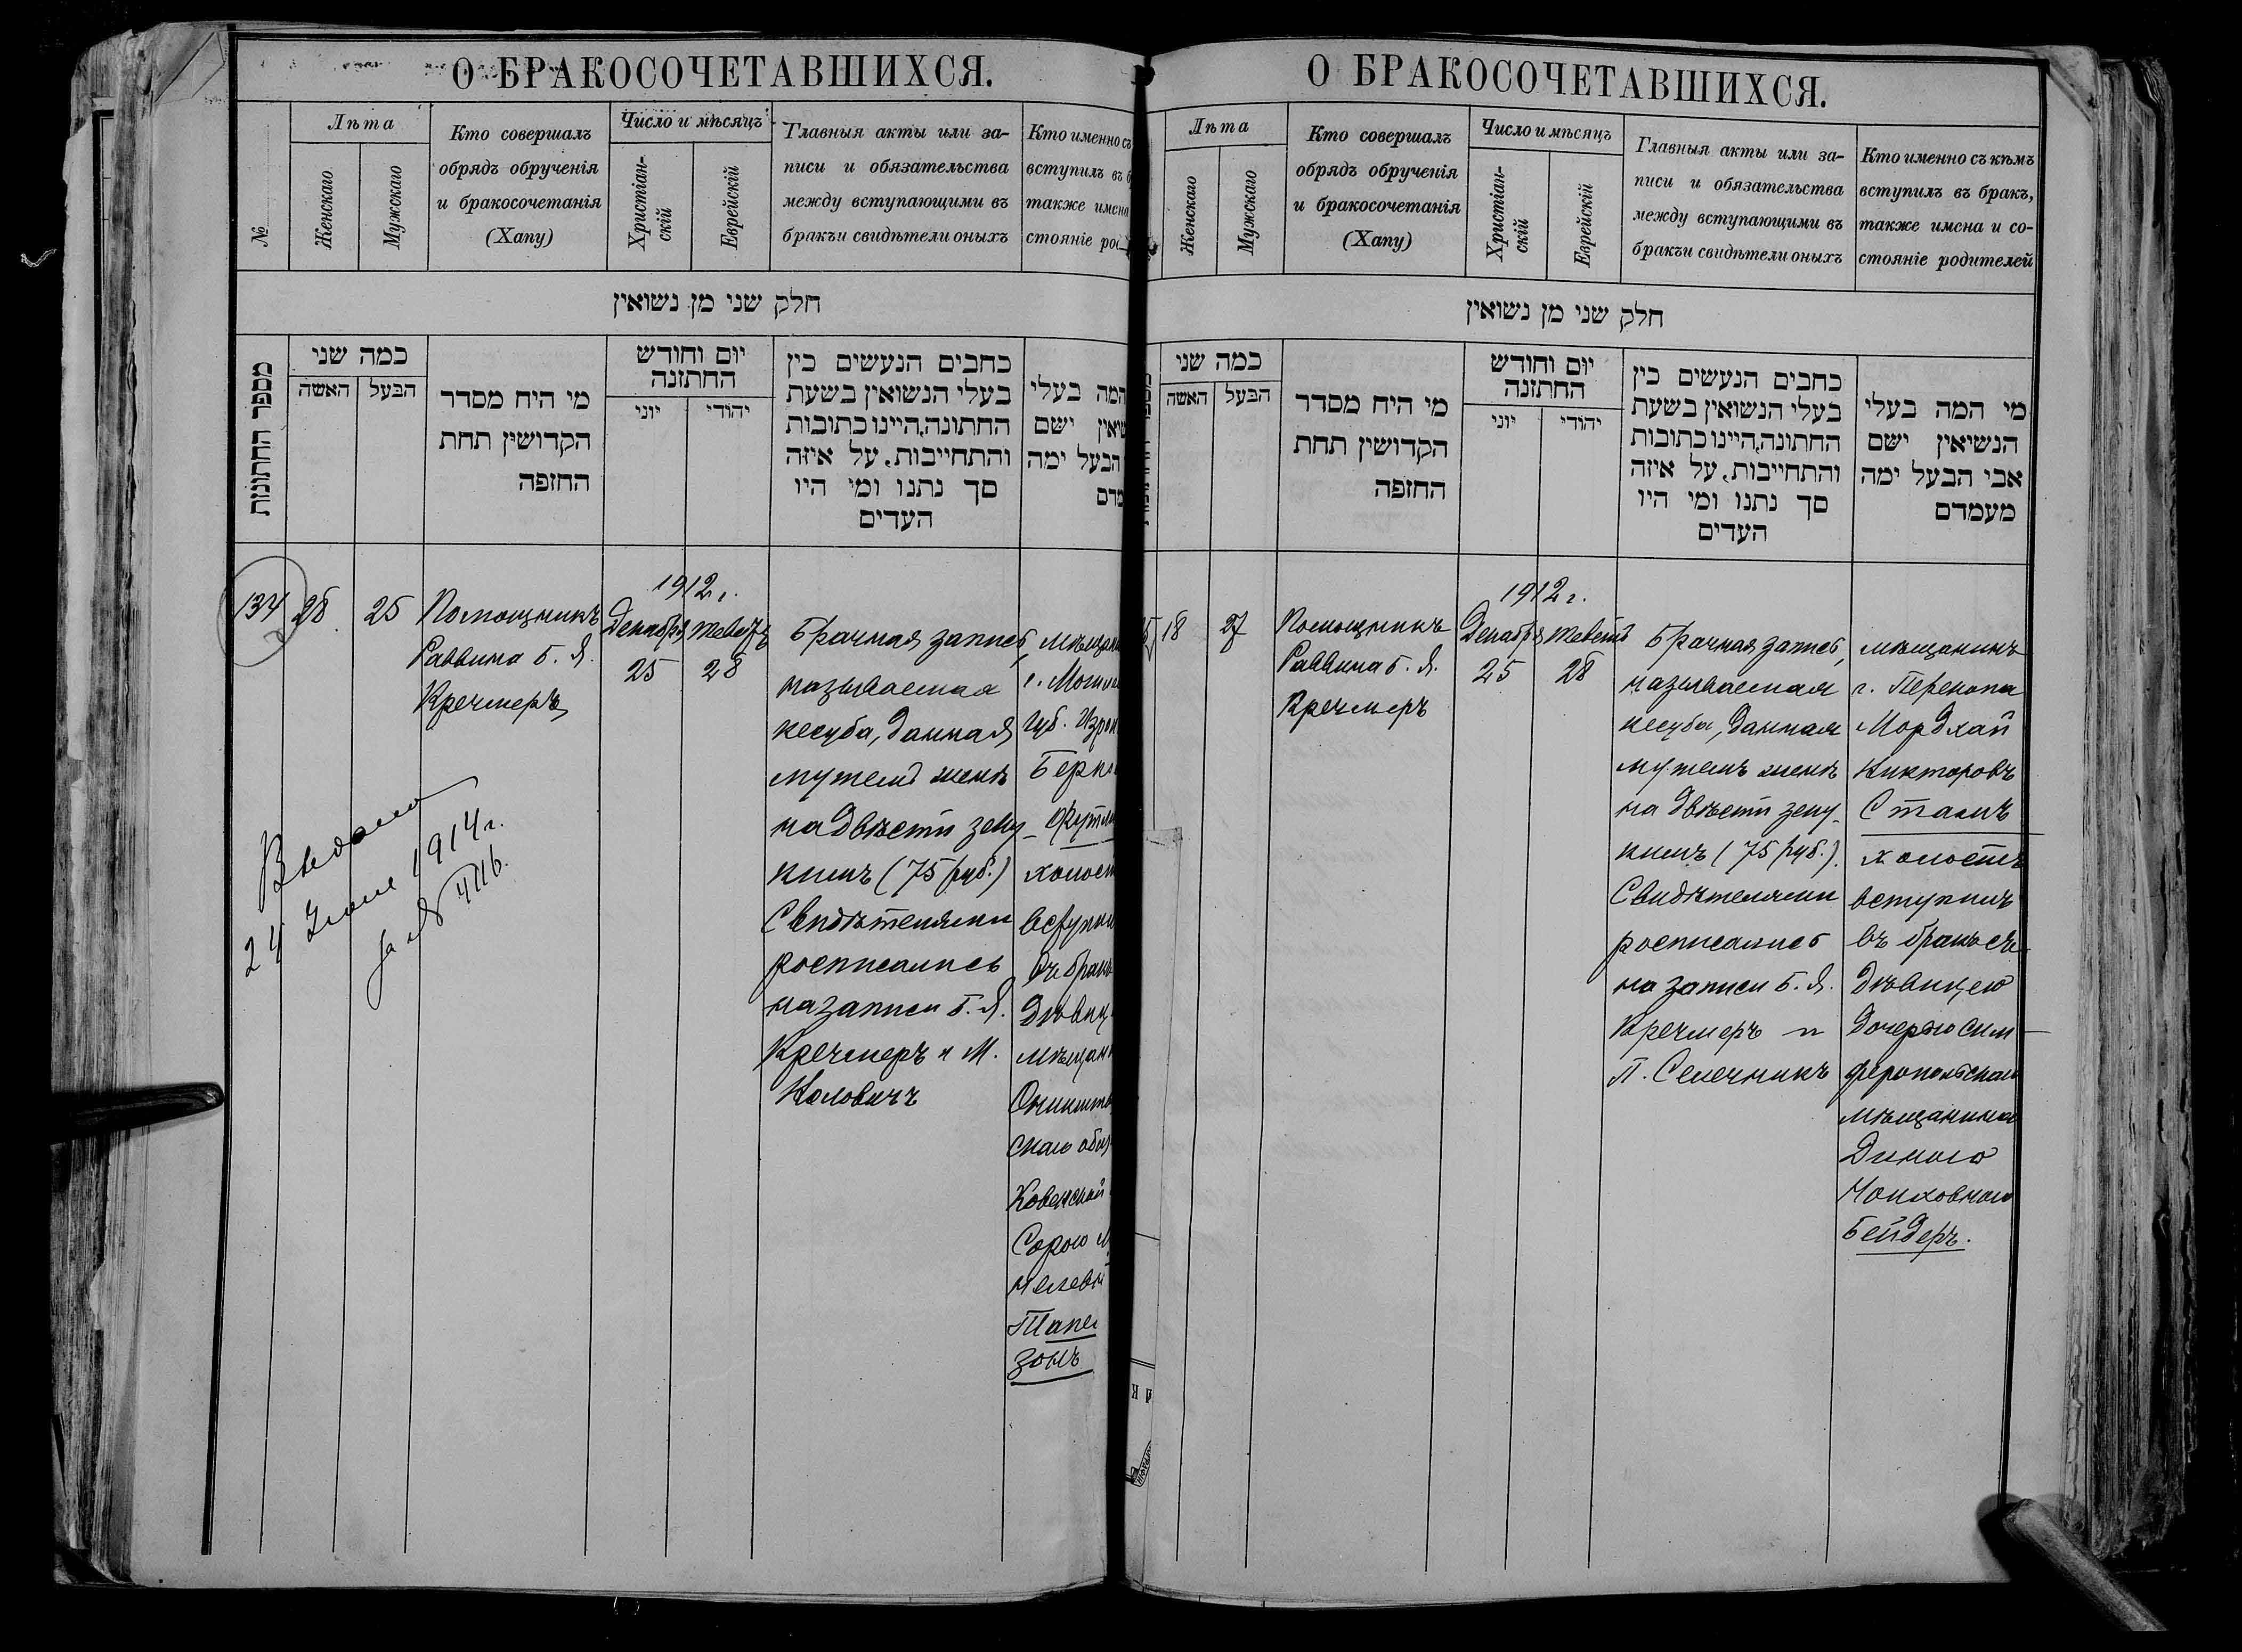 О БРАКОСОЧЕТАВШИХСЯ.
№
Лѣта
Женскаго
Мужскаго
Кто совершалъ
обрядъ обрученія
и бракосочетанія
(Хапу)
Число и мѣсяцъ
Христіан-
скій
Еврейскій
Главныя акты или за-
писи и обязательства
между вступающими въ
бракъи свидѣтели оныхъ
Кто именно съ
вступилъ въ б
также имена
стояніе ро
חלק שני מן נשואין
מספר החתונות
כמה שני
האשה
הבעל
מי היח מסדר
הקדושין תחת
החופה
יום וחודש
החתונה
יוני
יהודי
כחבים הנעשים כין
בעלי הנשואין בשעת
החתונה, היינו כתובות
והתחייבות, על איזה
סך נתנו ומי היו
העדים
המה בעלי
שיאין ישם
הבעל ימה
מדם
134
28
25
Помощникъ
Раввина Б. Я.
Кречмеръ
1912 г.
Декабря
25
Теветъ
28
Брачная запись,
называемая
кесуба, данная
мужемъ женѣ
на двѣсти зеку-
кимъ (75 руб.)
Свидѣтелями
росписались
на записи Б. Я.
Кречмеръ и М.
мѣщани
г. Могил
губ. Изро
Берко
холост
вступил
въ бракъ
дѣвиц
мѣщан
скаго общ
Ковенской
Сорою М
Тапе
зонъ
Выдано
24 1914 г.
за № 4116.
О БРАКОСОЧЕТАВШИХСЯ.
Лѣта
Женскаго
Мужскаго
Кто совершалъ
обрядъ обрученія
и бракосочетанія
(Хапу)
Число и мѣсяцъ
Христіан-
скій
Еврейскій
Главныя акты или за-
писи и обязательства
между вступающими въ
бракъи свидѣтели оныхъ
Кто именно съ кѣмъ
вступилъ въ бракъ,
также имена и со-
стояніе родителей
חלק שני מן נשואין
כמה שני
האשה
הבעל
מי היח מסדר
הקדושין תחת
החופה
יום וחודש
החתונה
יוני
יהודי
כחבים הנעשים כין
בעלי הנשואין בשעת
החתונה, היינו כתובות
והתחייבות, על איזה
סך נתנו ומי היו
העדים
מי המה בעלי
הנשיאין ישם
אבי הבעל ימה
מעמדם
18
27
Помощникъ
Раввина Б. Я.
Кречмеръ
1912 г.
Декабря
25
Теветъ
28
Брачная запись,
называемая
кесуба, данная
мужемъ женѣ
на двѣсти зеку-
кимъ (75 руб.).
Свидѣтелями
росписались
на записи Б. Я.
Кречмеръ и
П. Селечникъ
мѣщанинъ
г. Перекопа
Мордхай
Сталь
холостъ
вступилъ
въ бракъ съ
дѣвицею
дочерью сим-
феропольскаго
мѣщанина
Диною
Бейдеръ.